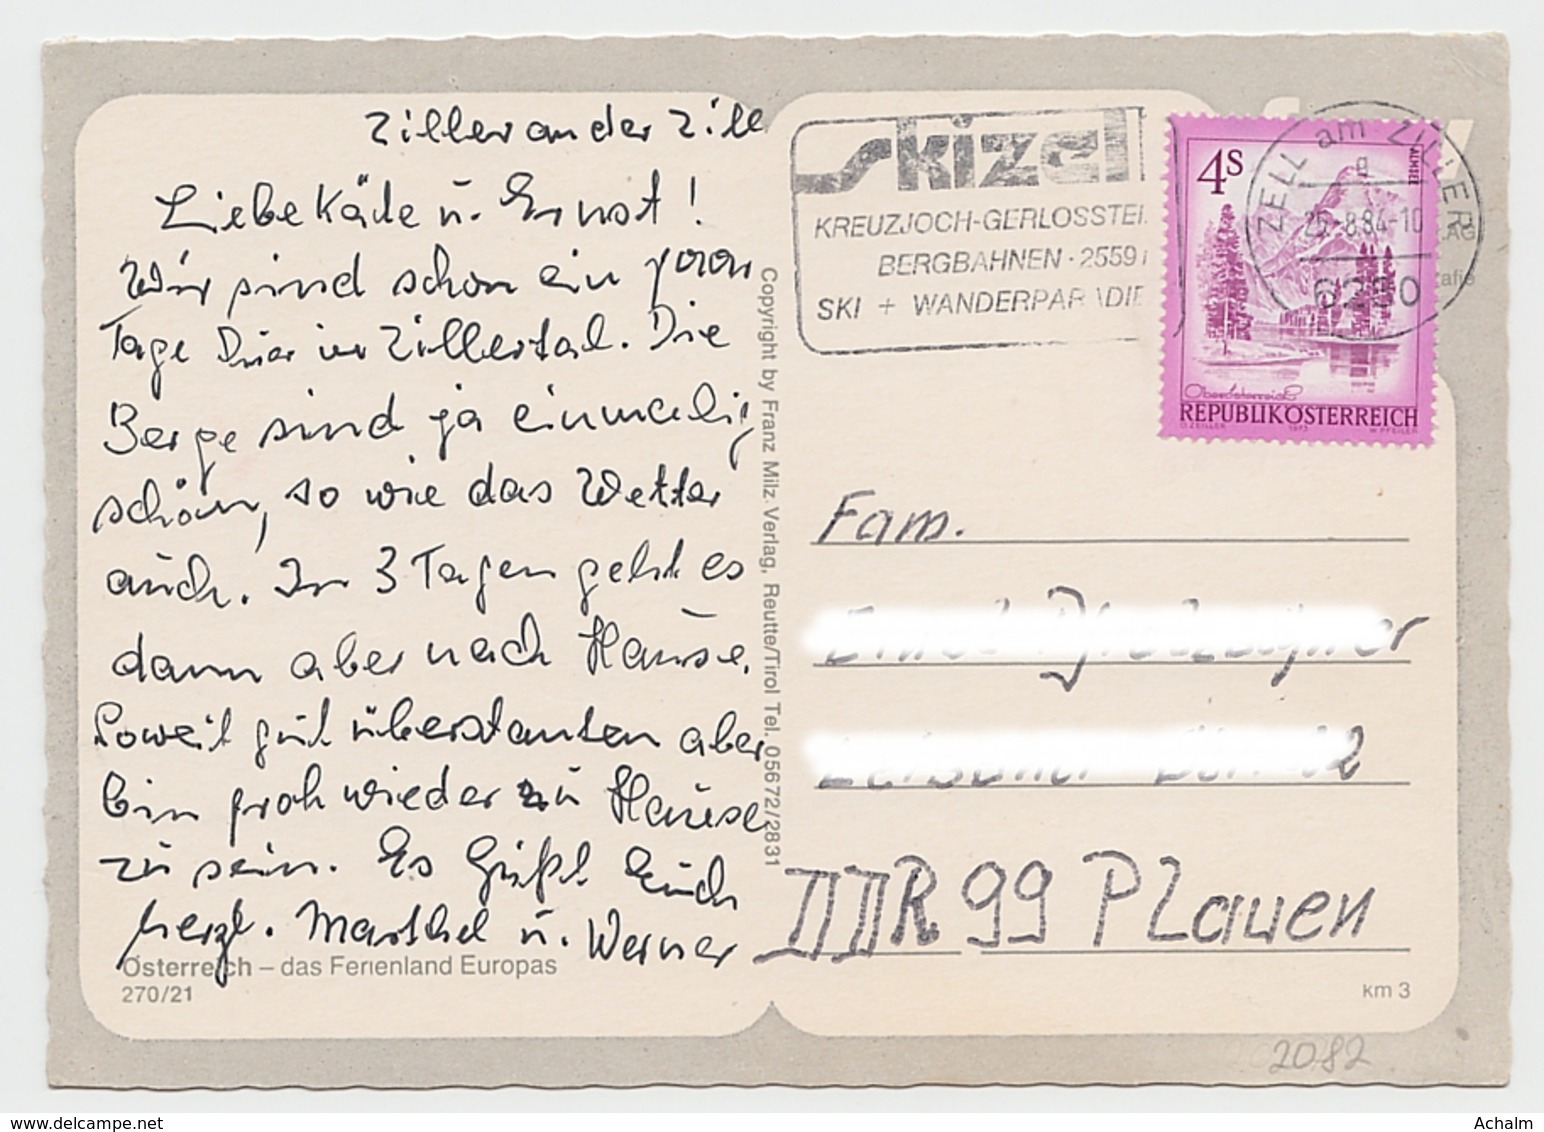 Ziller an der Zill
Liebe Käde u. Ernst!
Wir sind schon ein paar
Tage hier im Zillertal. Die
Berge sind ja einmalig
schön, so wie das Wetter
auch. In 3 Tagen geht es
dann aber nach Hause.
Soweit gut überstanten aber
bin froh wieder zu Hause
zu sein. Es Grüßt Euch
herzl. u. Werner
Österreich – das Ferienland Europas
270/21
Copyright by Franz Milz Verlag, Reutte/Tirol Tel. 05672/2831
skizell
KREUZJOCH-GERLOSSTEI
BERGBAHNEN · 2559
SKI + WANDERPARADIE
4S
ALMSEE
Oberösterreich
REPUBLIK ÖSTERREICH
O. ZEILLER 1973 W. PFEILER
ZELL am ZILLER
g
25.-8.84-10
6280
LAG
afie
Fam.
DDR 99 Plauen
km 3
2082
delcampe.net
Achalm